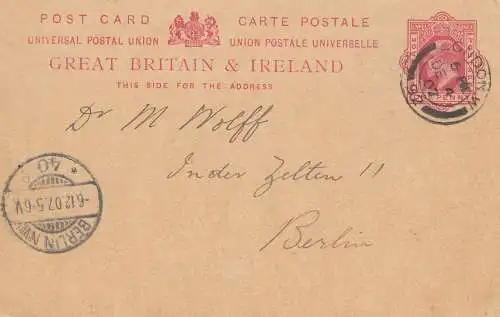 POST CARD CARTE POSTALE
UNIVERSAL POSTAL UNION UNION POSTALE UNIVERSELLE
GREAT BRITAIN & IRELAND
THIS SIDE FOR THE ADDRESS
LONDON. W
DE
07
PENNY
Dr M Wolff
In der Zelten 11
Berlin
* 40
-6.12.07.5-6V.
BERLIN NW